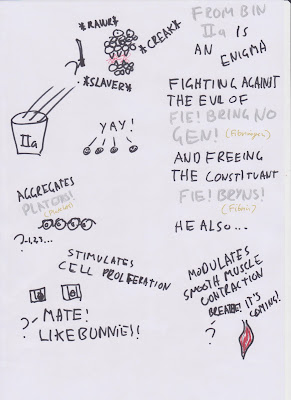 *RAWR*
*CREAK*
*SLAVER*
IIa
YAY!
AGGREGATES
PLATONS!
(Platelets)
?-1,2,3...
STIMULATES
CELL PROLIFERATION
? MATE!
LIKE BUNNIES!!
FROM BIN
IIa IS
AN ENIGMA
FIGHTING AGAINST
THE EVIL OF
FIE! BRING NO
GEN! (Fibrinogen)
AND FREEING
THE CONSTITUANT
FIE! BRYNS!
(Fibrin)
HE ALSO...
MODULATES
SMOOTH MUSCLE
CONTRACTION
BREATHE! IT'S
COMING!
?